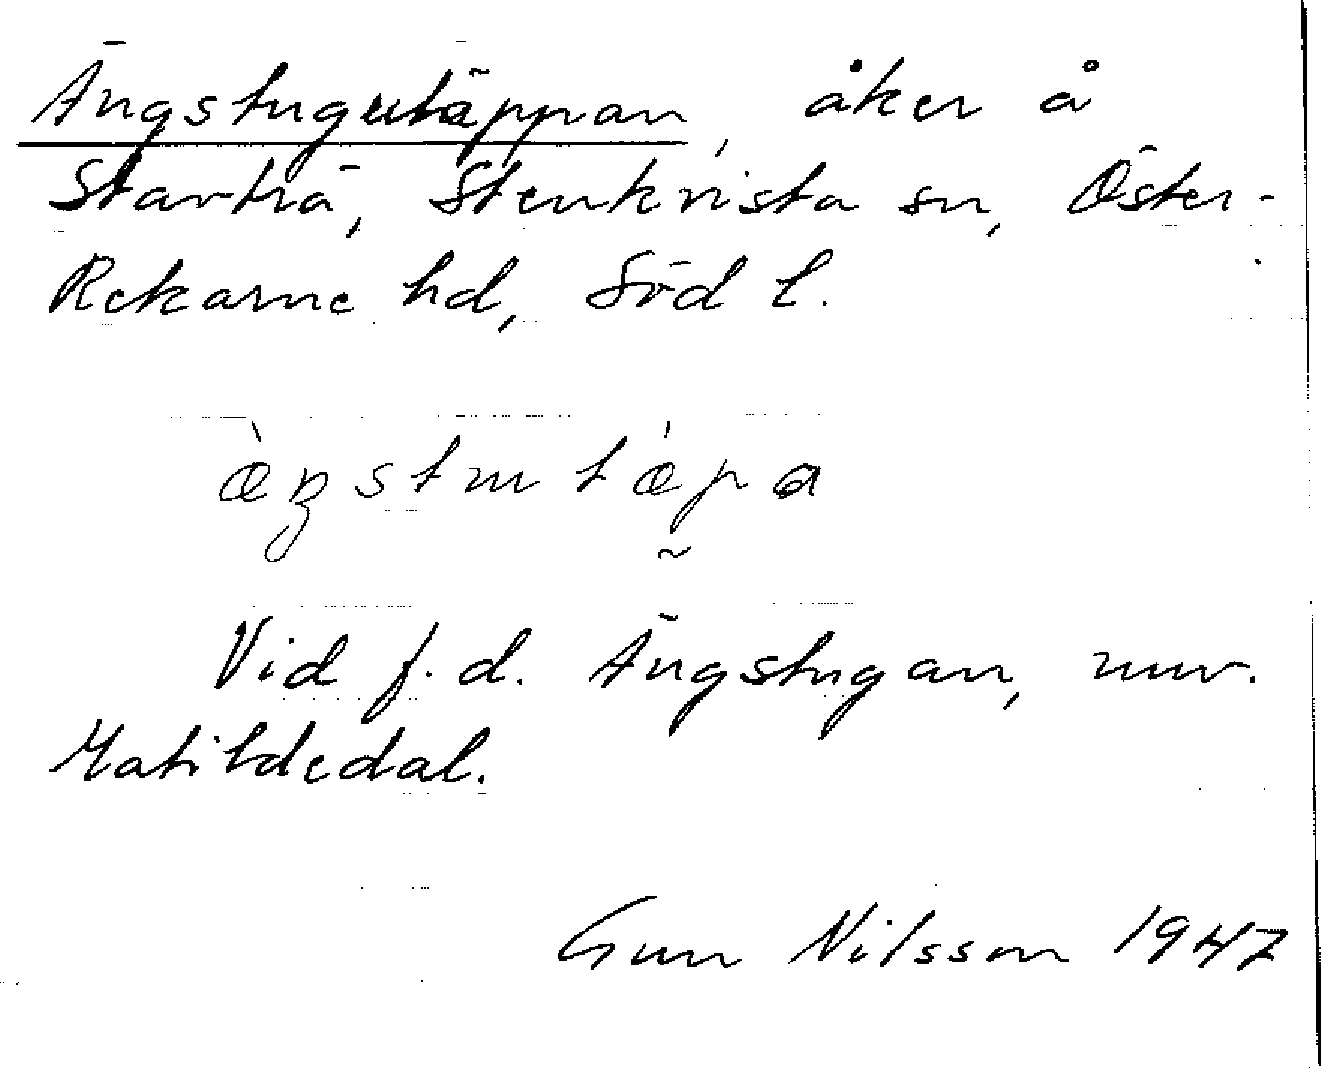 Ängstugutäppan, åker å
Stavtrā, Stenkvista sn, Öster-
Rekarne hd, Söd l.
Vid f.d. Ängstugan, nuv.
Matildedal.
Gun Nilsson 1947